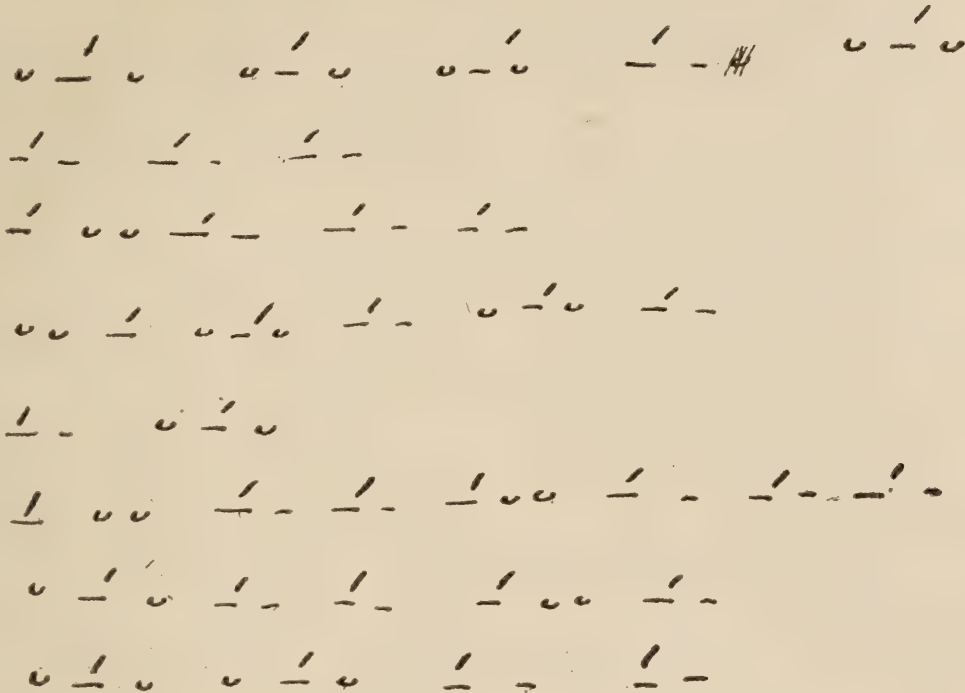 ∪ –́ ∪ ∪ –́ ∪ ∪ –́ ∪ –́ – ∪ –́ ∪
–́ – –́ – –́ –
–́ ∪ ∪ –́ – –́ – –́ –
∪ ∪ –́ ∪ –́ ∪ –́ – ∪ –́ ∪ –́ –
–́ – ∪ –́ ∪
–́ ∪ ∪ –́ – –́ – –́ ∪ ∪ –́ – –́ – –́ –
∪ –́ ∪ –́ – –́ – –́ ∪ ∪ –́ –
∪ –́ ∪ ∪ –́ ∪ –́ – –́ –